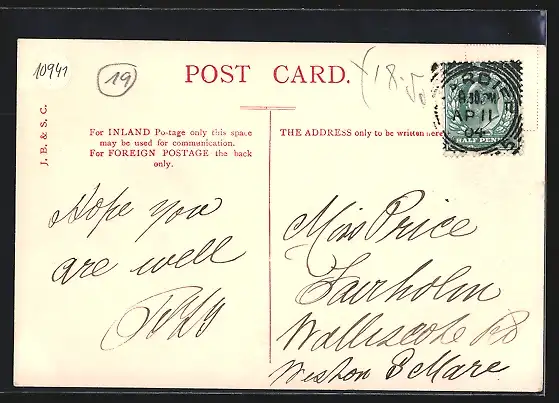 10941
19
POST CARD.
18.50
CARDIFF
8.30 PM
AP 11
04
HALF PENNY
J. B. & S. C.
For INLAND Postage only this space
may be used for communication.
For FOREIGN POSTAGE the back
only.
THE ADDRESS only to be written here
Hope you
are well
Miss Price
Fairholm
Walliscote Rd
Weston S Mare